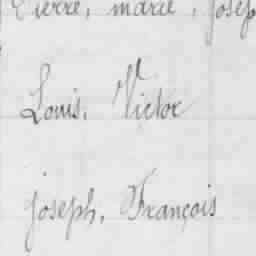 Pierre, marie, josep
Louis, Victor
joseph, François